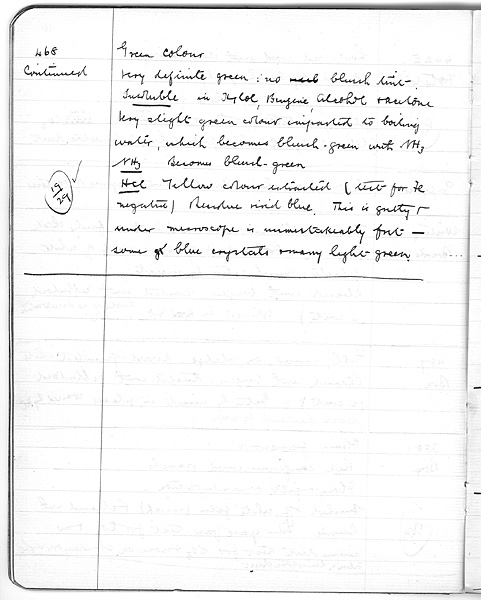 468
Continued
Green colour
Very definite green: no blueish tint.
Insoluble in Xylol, Benzene, Alcohol & acetone
Very slight green colour imparted to boiling
water, which becomes blueish-green with NH3
NH3 Becomes blueish-green
HCl Yellow colour extracted (test for Fe
negative) Residue vivid blue. This is gritty &
under microscope is unmistakeably frit -
some blue crystals & many light green.
19
29